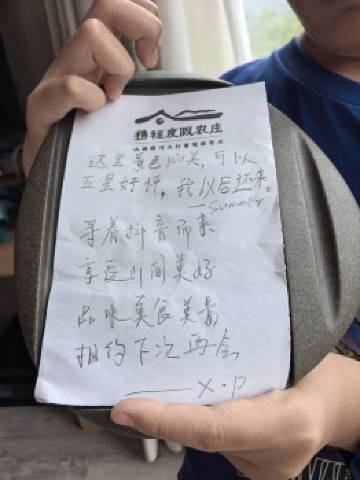 携程度假农庄
这里景色优美,可以
五星好评,我以后还来。
—Summer
寻着抖音而来
享受山间美好
品味美食美景
相约下次再会
——X·P